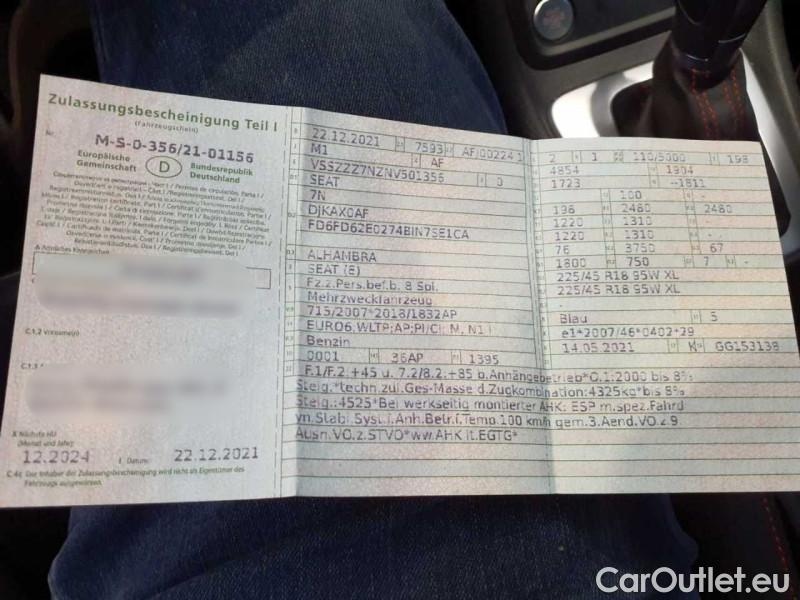 Zulassungsbescheinigung Teil I
(Fahrzeugschein)
Nr. M-S-0-356/21-01156
Europäische Gemeinschaft
D
Bundesrepublik Deutschland
C.1.2 Vorname(n)
C.1.3
X Nächste HU
(Monat und Jahr)
12.2024
I Datum: 22.12.2021
C.4c Der Inhaber der Zulassungsbescheinigung wird nicht als Eigentümer des
Fahrzeugs ausgewiesen.
22.12.2021 7593 AF/00224 1
M1 AF
VSSZZZ7NZNV501356 0
SEAT
7N
DJKAX0AF
FD6FD62E0274BIN7SE1CA
ALHAMBRA
SEAT (E)
Fz.z.Pers.bef.b. 8 Spl.
Mehrzweckfahrzeug
715/2007*2018/1832AP
EURO6,WLTP;AP;PI/CI; M, N1 I
Benzin
0001 36AP 1395
F.1/F.2:+45 u. 7.2/8.2:+85 b.Anhängebetrieb*O.1:2000 bis 8%
Steig.*techn.zul.Ges-Masse d.Zugkombination:4325kg*bis 8%
Steig.:4525*Bei werkseitig montierter AHK: ESP m.spez.Fahrd
yn.Stabi.Syst.f.Anh.Betr.f.Temp.100 km/h gem.3.Aend.VO.z.9.
Ausn.VO.z.STVO*ww.AHK lt.EGTG*
2 1 110/5000 198
4854 1904
1723 --1811
100 -
196 2480 2480
1220 1310 -
1220 1310 -
76 3750 67
1800 750 7 -
225/45 R18 95W XL
225/45 R18 95W XL
Blau 5
e1*2007/46*0402*29
14.05.2021 K GG153138
CarOutlet.eu